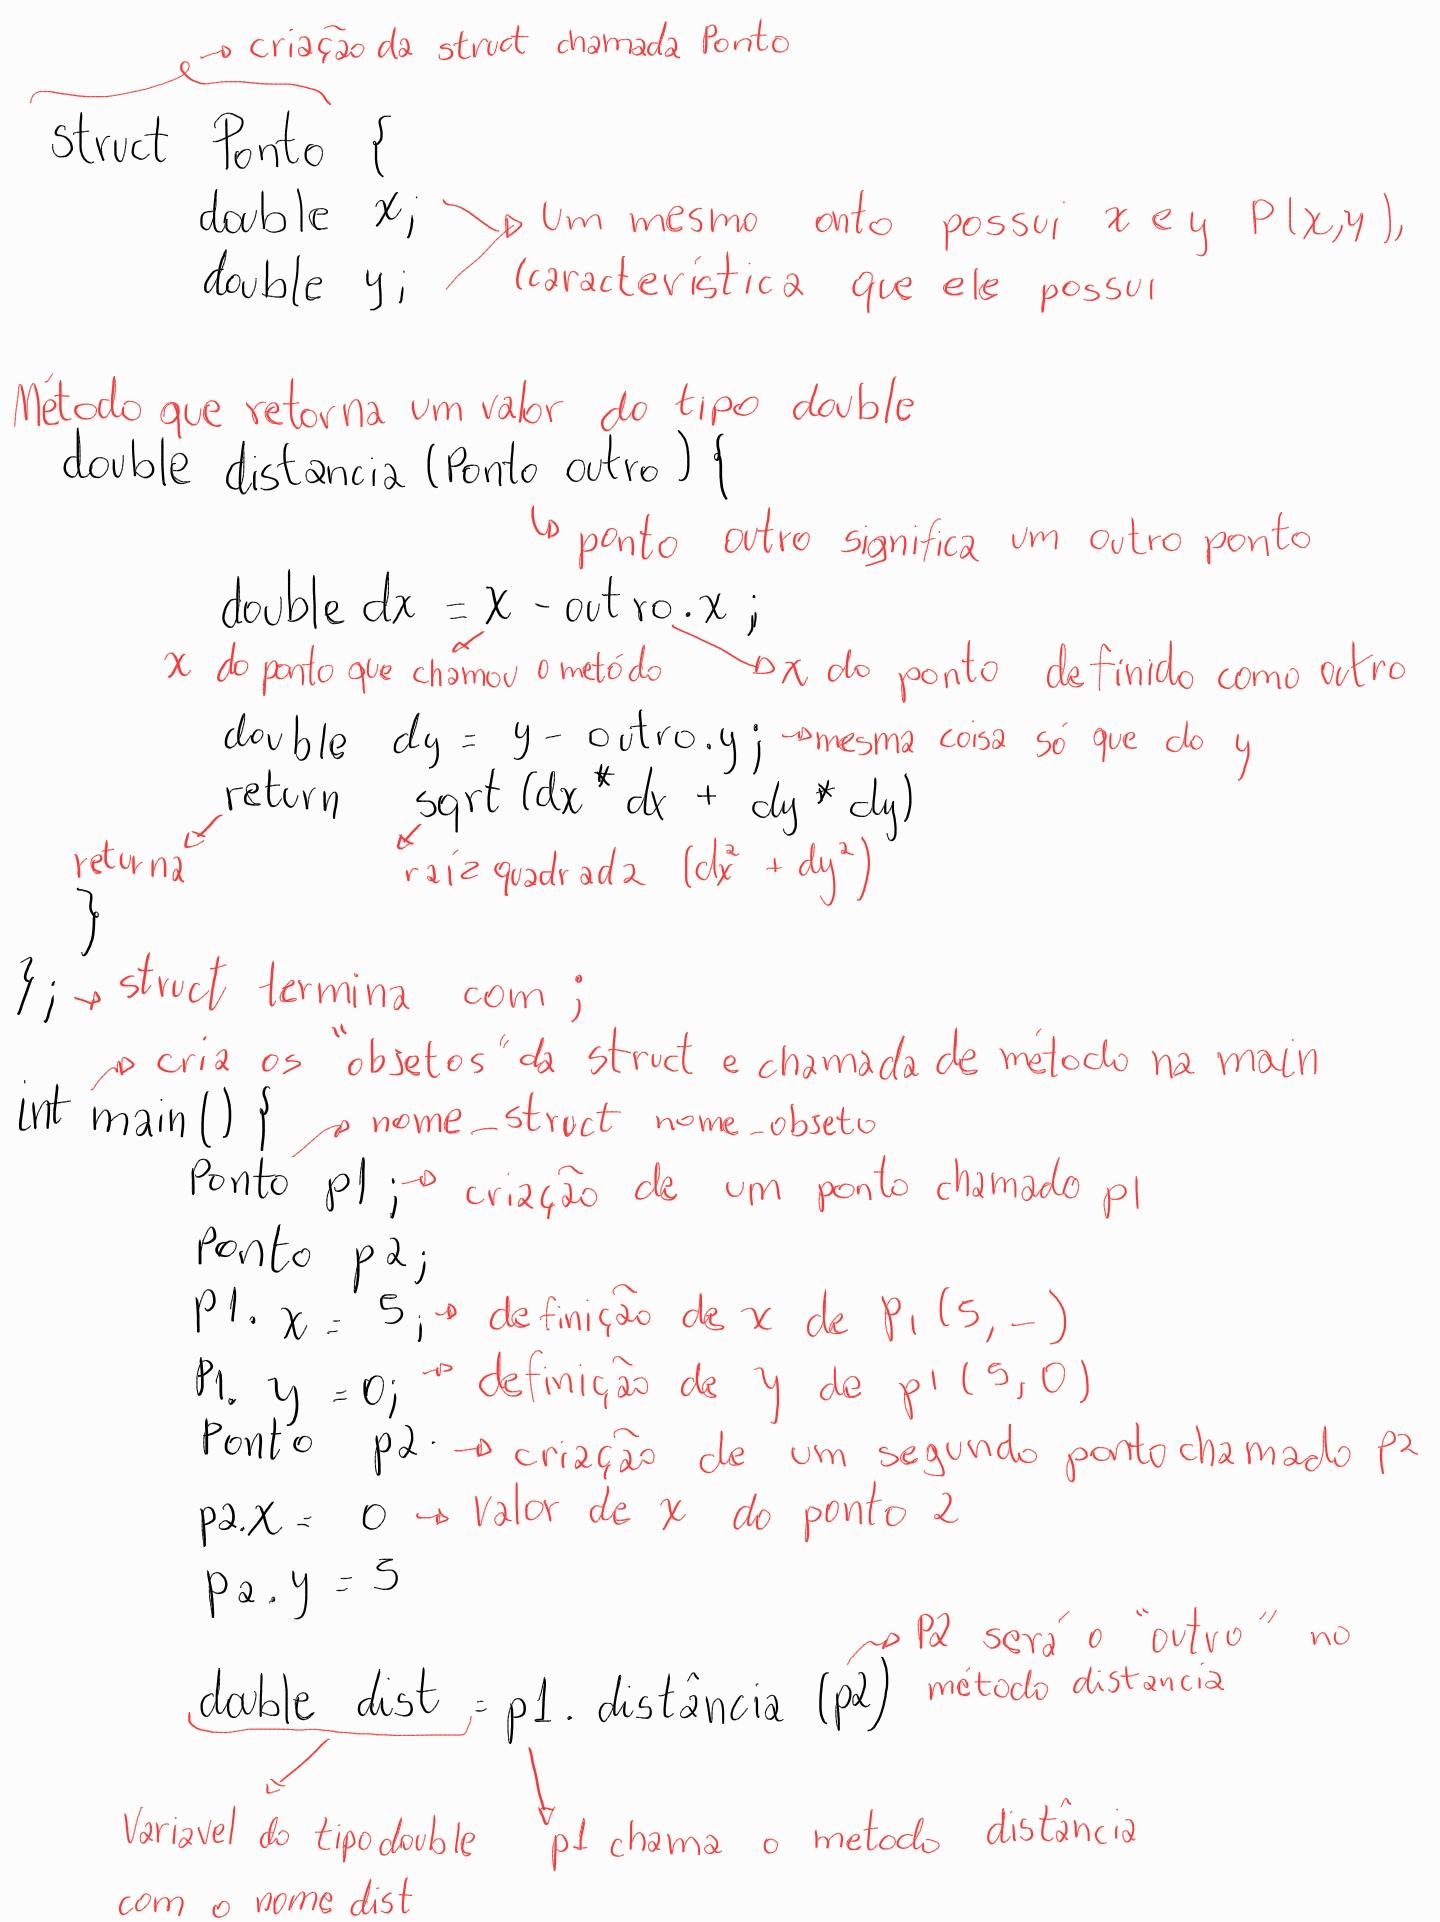 → criação da struct chamada Ponto
struct Ponto {
double x;
double y;
→ Um mesmo onto possui x e y P(x,y),
(característica que ele possui
Método que retorna um valor do tipo double
double distancia (Ponto outro) {
↳ ponto outro significa um outro ponto
double dx = x - outro.x ;
x do ponto que chamou o metódo → x do ponto definido como outro
double dy = y - outro.y; → mesma coisa só que do y
return sqrt (dx * dx + dy * dy)
returna raíz quadrada (dx² + dy²)
}
}; → struct termina com ;
→ cria os "objetos" da struct e chamada de método na main
int main() { → nome_struct nome_objeto
Ponto p1; → criação de um ponto chamado p1
Ponto p2;
p1. x = 5; → definição de x de P1 (5, -)
P1. y = 0; → definição de y de p1 (5, 0)
Ponto p2. → criação de um segundo ponto chamado p2
p2.x = 0 → Valor de x do ponto 2
p2.y = 5
→ P2 será o "outro" no
método distancia
double dist = p1. distância (p2)
Variavel do tipo double
com o nome dist
p1 chama o metodo distância